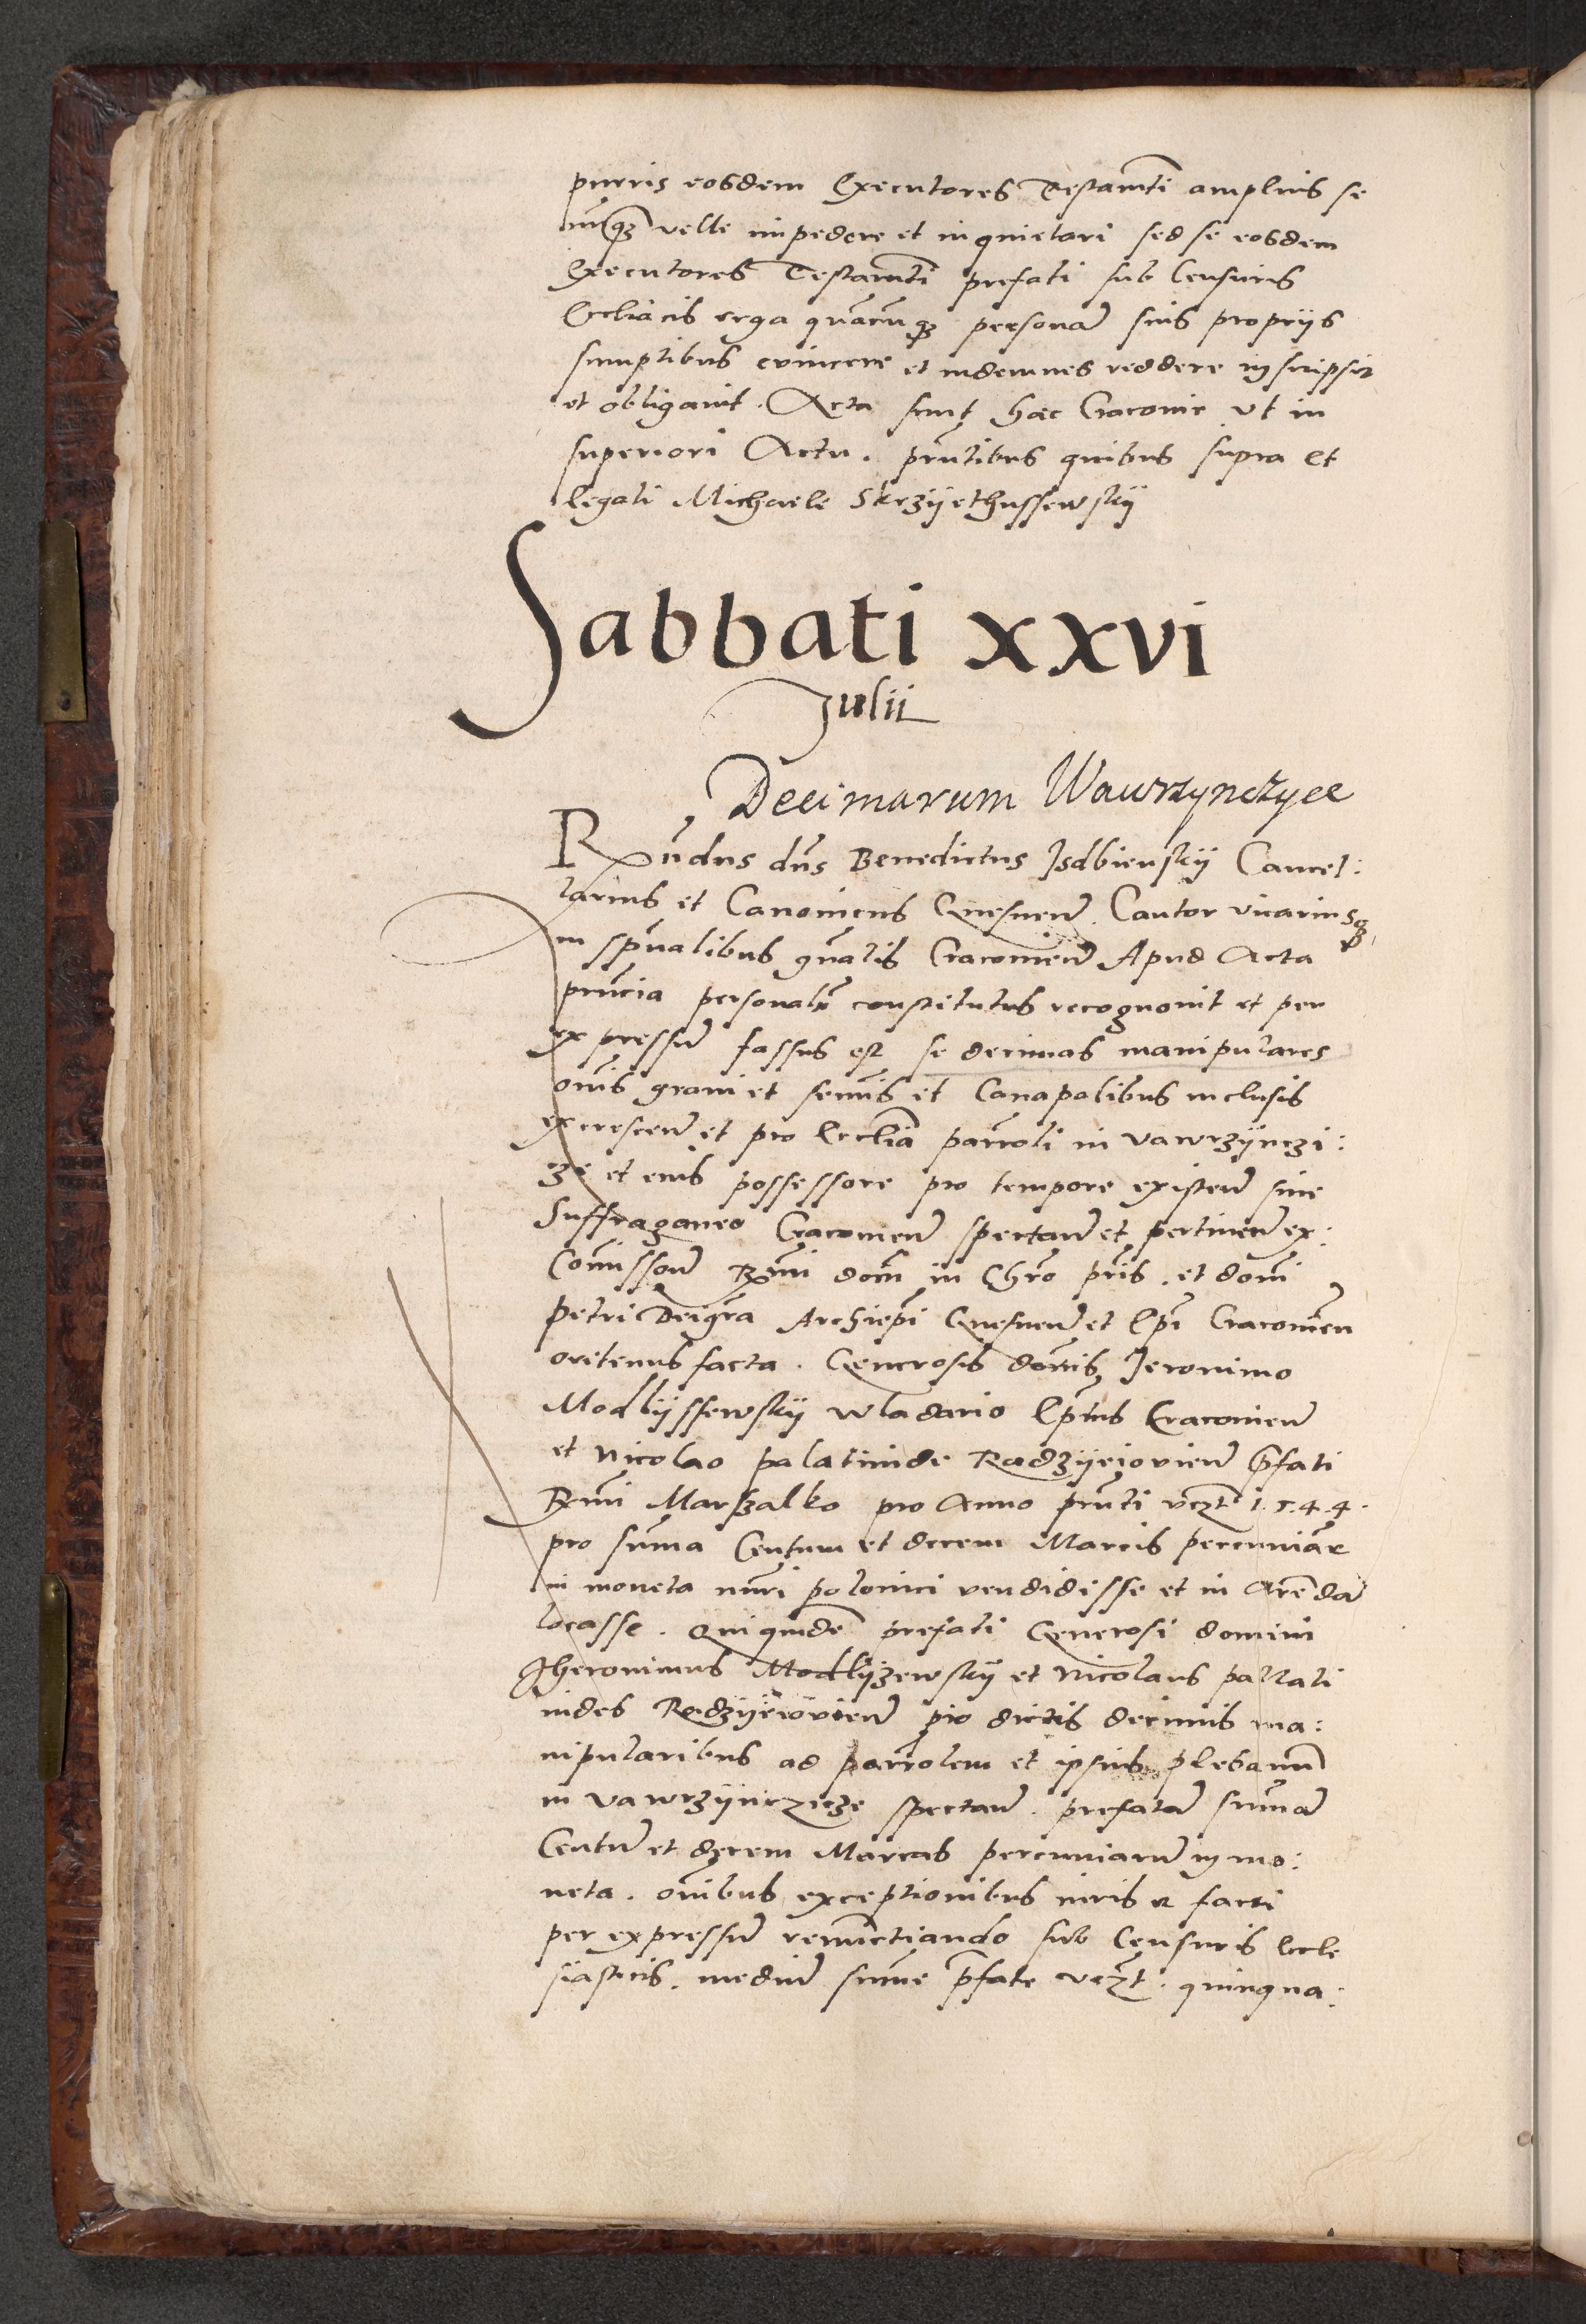 purris eosdem Executores Testamti amplius se
nunqꝫ velle impedere et inquietari sed se eosdem
Executores Testamti prefati sub Censuris
Eccliacis erga quacunqꝫ personã suis proprijs
sumptibus evincere et indemnes reddere inscripsit
et obligavit. Acta sunt hæc Cracovie vt in
superiori Actu. prñtibus quibus supra et
legali Michaele Skrzÿethussewskÿ
Sabbati xxvi
Julii
Decimarum Wawrzynczyce
Rñdus dñs Benedictus Jsdbienskÿ Cancel:
larius et Canonicus Gnesneñ. Cantor vicariusqꝫ
in spũalibus gñalis Cracovieñ Apud Acta
prñcia personalr constitutus recognovit et per
expressũ fassus est se decimas manipulares
oñis grani et semis et Canapalibus inclusis
excresceñ et pro Ecclia parroli in vawrzÿnczi:
ze et eius possessore pro tempore existeñ sive
Suffraganeo Cracovieñ spectañ et pertineñ ex:
Comissoñ Rmi doñi in Chro pris. et domi
Petri Dei gra Archiepi Gnesneñ et Epi Cracovien
oretenus facta. Generosis domis Jeronimo
Modlÿssewskÿ wladario Eptus Cracovieñ
et Nicolao palatinide Radzÿeiovieñ p̃fati
Rmi Marszalko pro Anno prñti vczt 1.5.4.4.
pro suma Centum et decem Marcis pecuniar
in moneta nuri polonici vendidisse et in Arendã
locasse. Qui quidẽ prefati Generosi domini
Jheronimus Modlÿzewskÿ et Nicolaus pallati
nides Radzÿeiovieñ pro dictis decimis ma:
nipularibus ad parrolem et ipsius plebanũ
in vawrzÿnczicze spectañ. prefatã sumã
Centũ et decem Marcas pecuniarũ in mo:
neta. omibus exceptionibus iuris et facti
per expressũ renunctiando sub Censuris Eccle
siasticis. mediũ sume p̃fate vczt: quinqua: